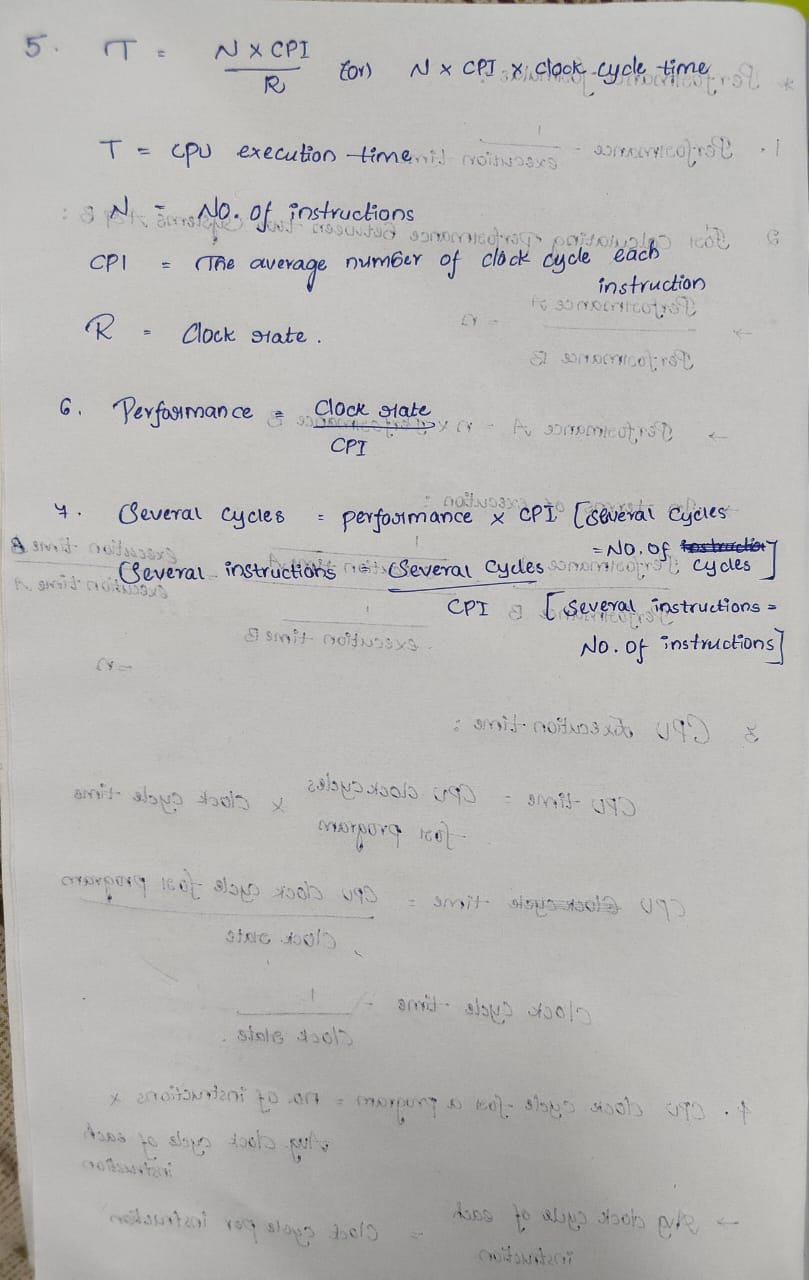 5. T = N X CPI / R (or) N x CPI x clock cycle time
T = CPU execution time
N = No. of instructions
CPI = The average number of clock cycle each
instruction
R = Clock rate.
6. Performance = Clock rate / CPI
7. Several cycles = performance x CPI [several cycles
= No. of instruction cycles]
Several instructions = Several cycles / CPI
[several instructions =
No. of instructions]